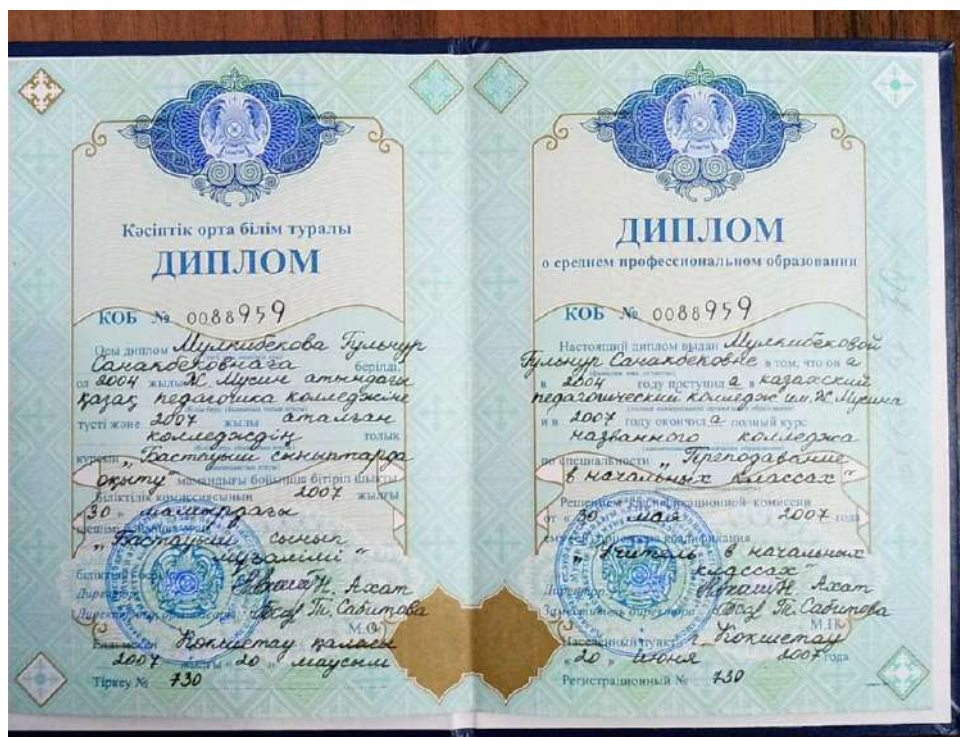 Кәсіптік орта білім туралы
ДИПЛОМ
КОБ № 0088959
Осы диплом Мулкибекова Гульнур
Санакбековнаға берілді,
ол 2004 жылы Ж. Мусин атындағы
қазақ педагогика колледжіне
түсті және 2007 жылы аталған
колледждің толық
курсын „Бастауыш сыныптарда
оқыту" мамандығы бойынша бітіріп шықты
Біліктілік комиссиясының 2007 жылғы
„30" мамырдағы
шешімі
„Бастауыш сынып
мұғалімі"
Н. Ахат
Т. Сабитова
М.О.
Көкшетау қаласы
2007 жылғы «20» маусым
Тіркеу № 730
ДИПЛОМ
о среднем профессиональном образовании
КОБ № 0088959
Настоящий диплом выдан Мулкибековой
Гульнур Санакбековне в том, что он а
в 2004 году поступил а в казахский
педагогический колледж им. Ж. Мусина
и в 2007 году окончил а полный курс
названного колледжа
по специальности „Преподавание
в начальных классах"
Решением квалификационной комиссии
от «30» мая 2007 года
квалификация
„Учитель в начальных
классах"
Директор Н. Ахат
Заместитель директора Т. Сабитова
М.П.
Населенный пункт г. Кокшетау
«20» июня 2007 года
Регистрационный № 730